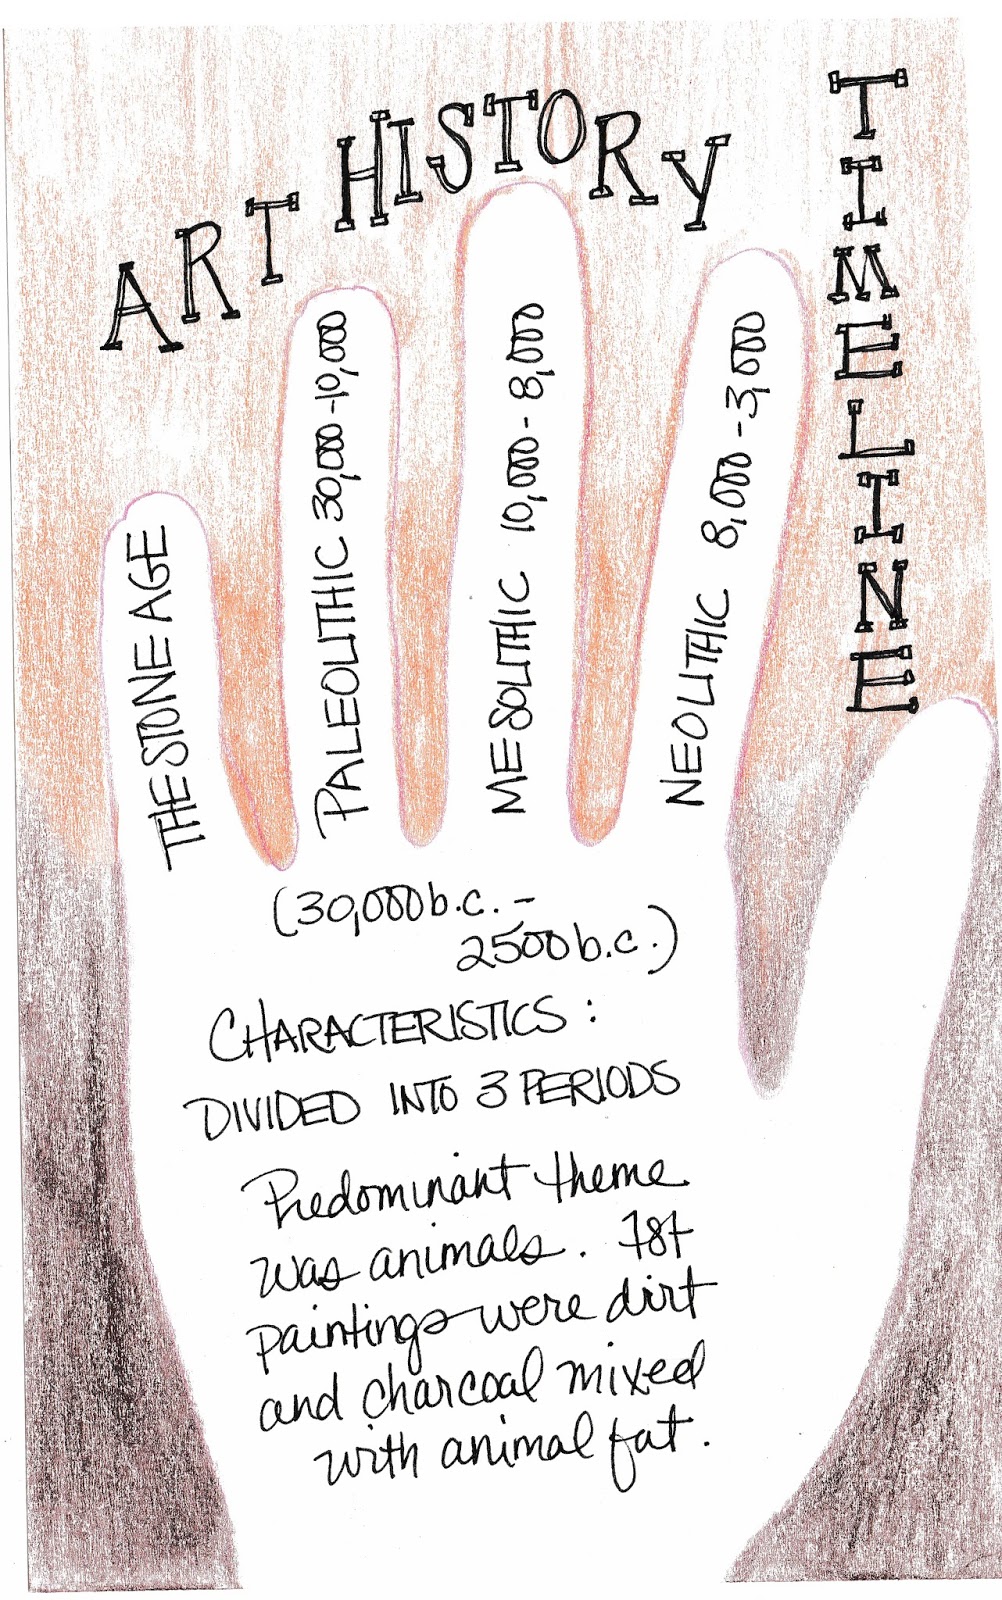 ART HISTORY
TIMELINE
THE STONE AGE
PALEOLITHIC 30,000-10,000
MESOLITHIC 10,000 - 8,000
NEOLITHIC 8,000 - 3,000
(30,000 b.c. -
2500 b.c.)
CHARACTERISTICS:
DIVIDED INTO 3 PERIODS
Predominant theme
was animals. 1st
paintings were dirt
and charcoal mixed
with animal fat.